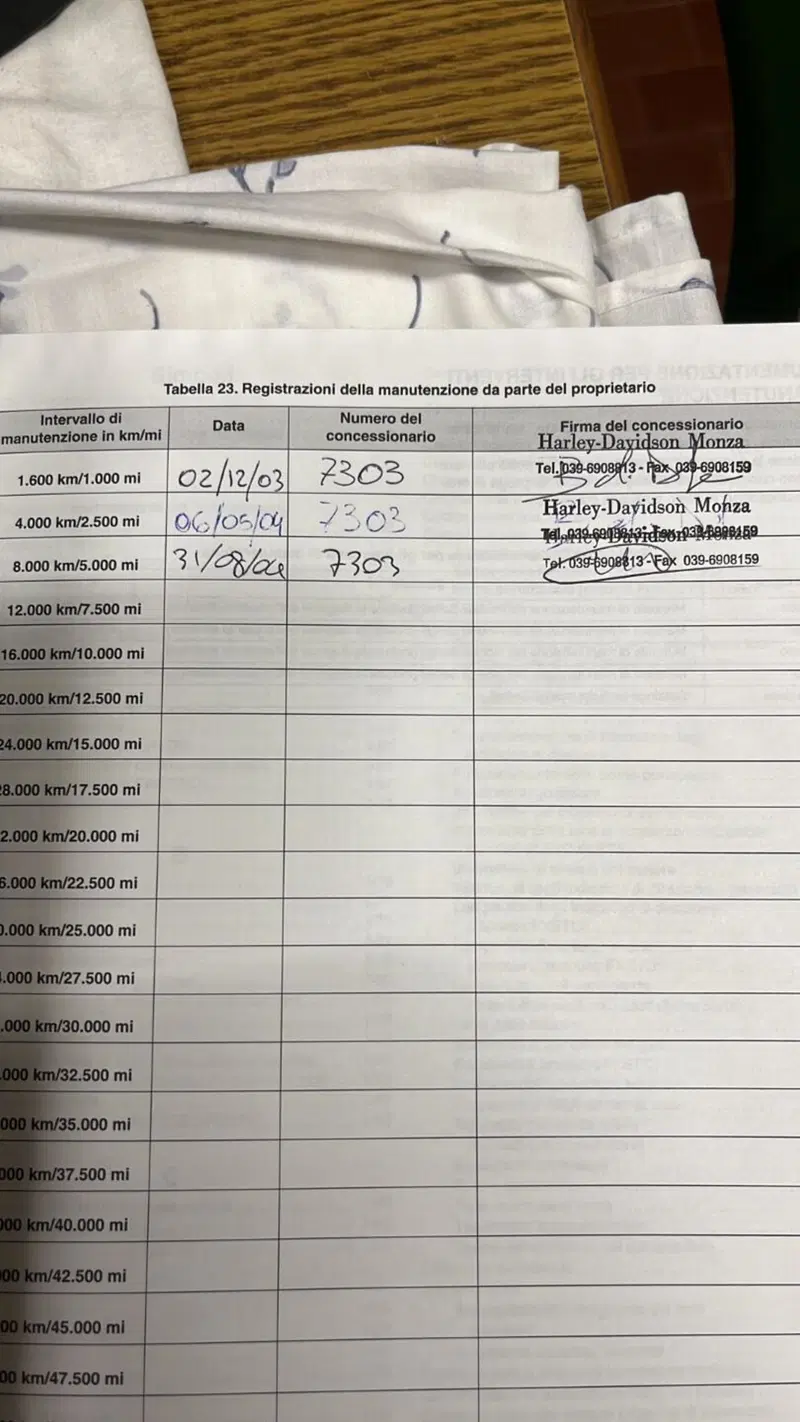 Tabella 23. Registrazioni della manutenzione da parte del proprietario
Intervallo di manutenzione in km/mi Data Numero del concessionario Firma del concessionario
Harley-Davidson Monza
1.600 km/1.000 mi 02/12/03 7303 Tel. 039-6908813 - Fax 039-6908159
Harley-Davidson Monza
4.000 km/2.500 mi 06/05/04 7303 Tel. 039-6908813 - Fax 039-6908159
Harley-Davidson Monza
8.000 km/5.000 mi 31/08/04 7303 Tel. 039-6908813 - Fax 039-6908159
12.000 km/7.500 mi
16.000 km/10.000 mi
20.000 km/12.500 mi
24.000 km/15.000 mi
8.000 km/17.500 mi
2.000 km/20.000 mi
6.000 km/22.500 mi
0.000 km/25.000 mi
.000 km/27.500 mi
.000 km/30.000 mi
000 km/32.500 mi
000 km/35.000 mi
000 km/37.500 mi
00 km/40.000 mi
00 km/42.500 mi
00 km/45.000 mi
00 km/47.500 mi